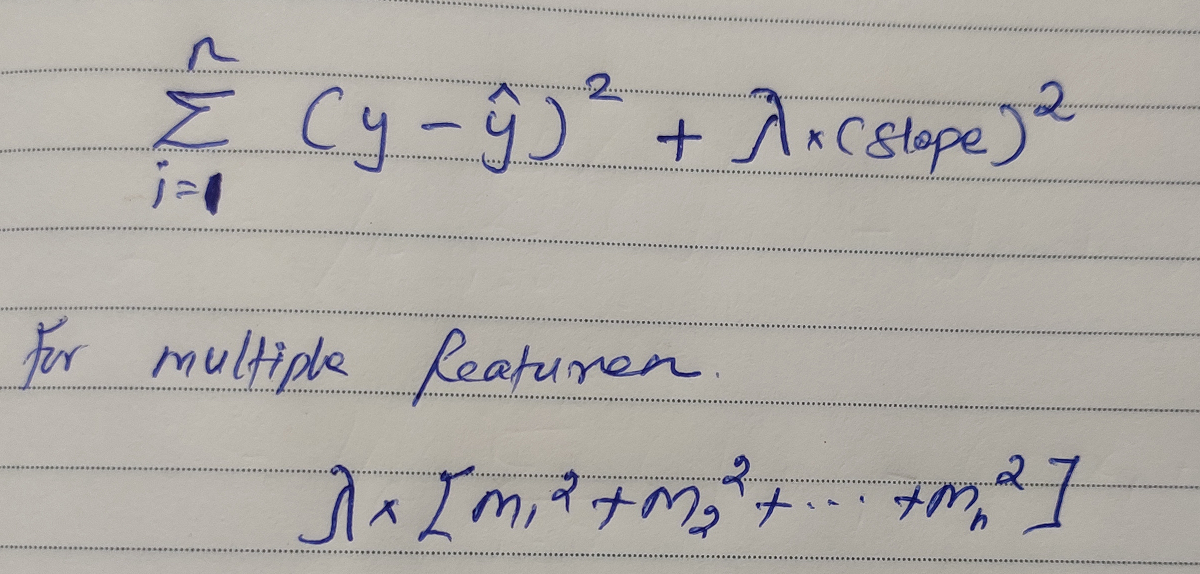 n
Σ (y - ŷ)² + λ × (slope)²
i=1
For multiple features.
λ × [m₁² + m₂² + ... + mₙ²]